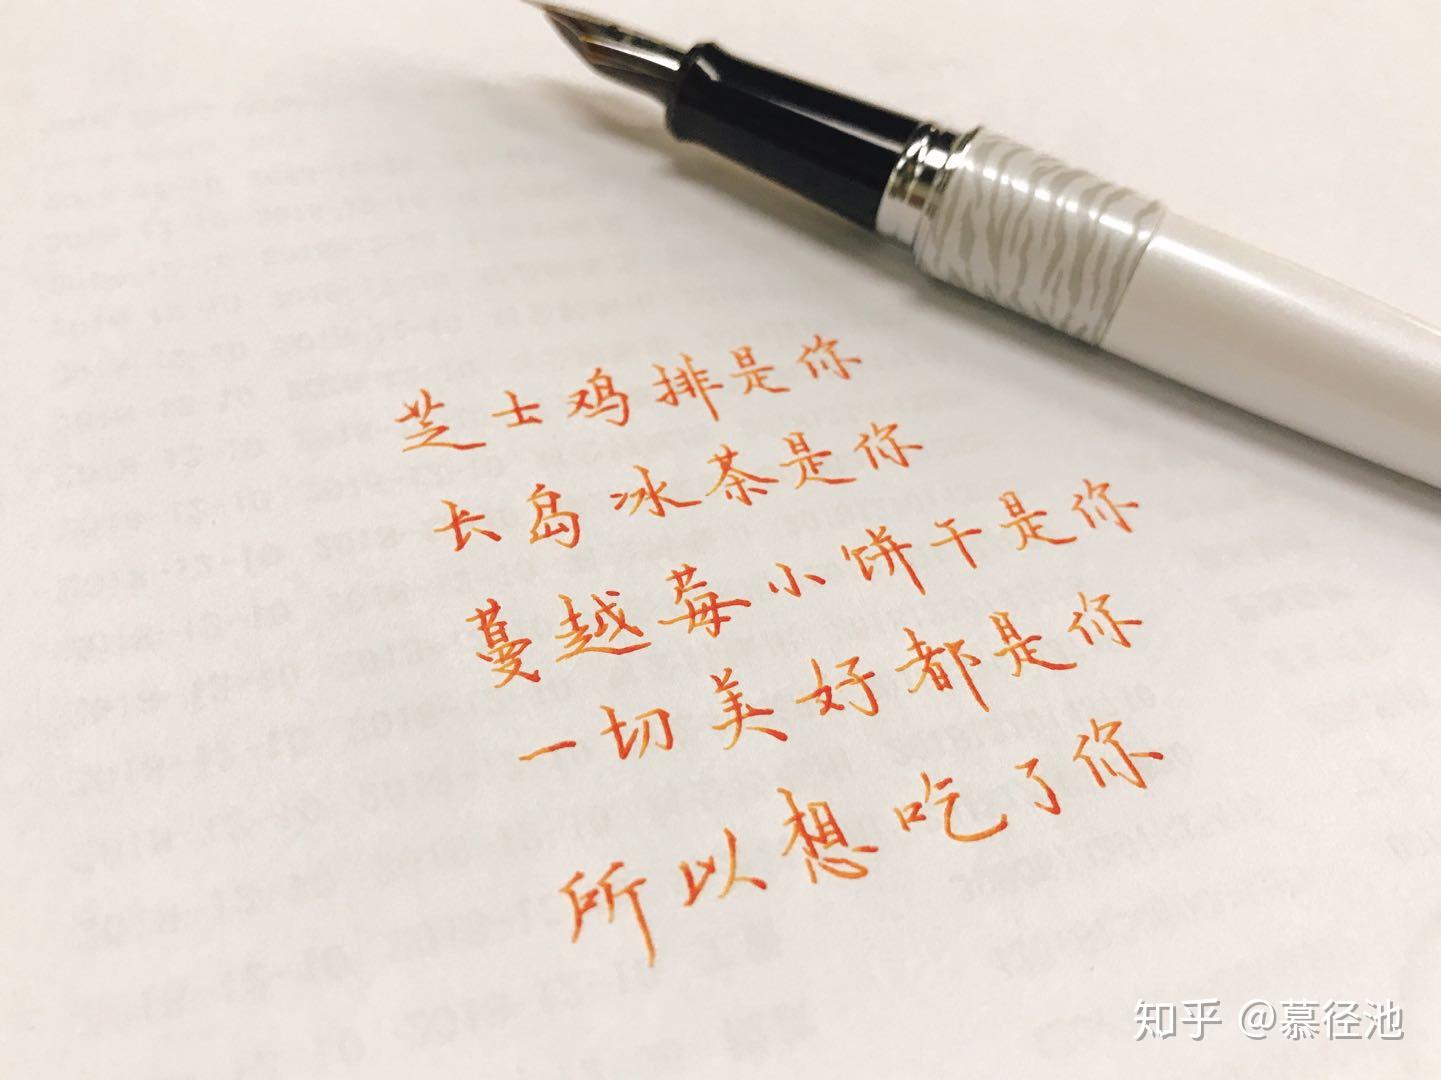 芝士鸡排是你
长岛冰茶是你
蔓越莓小饼干是你
一切美好都是你
所以想吃了你
知乎 @慕径池